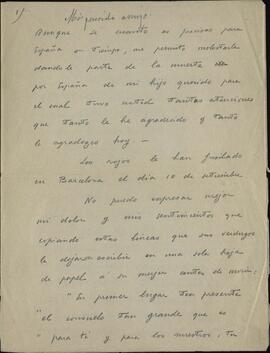 1)
Mi querido amigo:
Aunque se cuanto es precioso para
España su tiempo, me permito molestarle
dandole parte de la muerte
por España de mi hijo querido para
el cual tuvo usted tantas atenciones
que tanto le he agradecido y tanto
le agradezco hoy —
Los rojos le han fusilado
en Barcelona el dia 10 de setiembre
No puedo expresar mejor
mi dolor y mis sentimientos que
copiando estas lineas que sus verdugos
le dejaron escribir en una sola hoja
de papel á su mujer antes de morir:
"En primer lugar ten presente
"el consuelo tan grande que es
"para ti y para los nuestros, tu